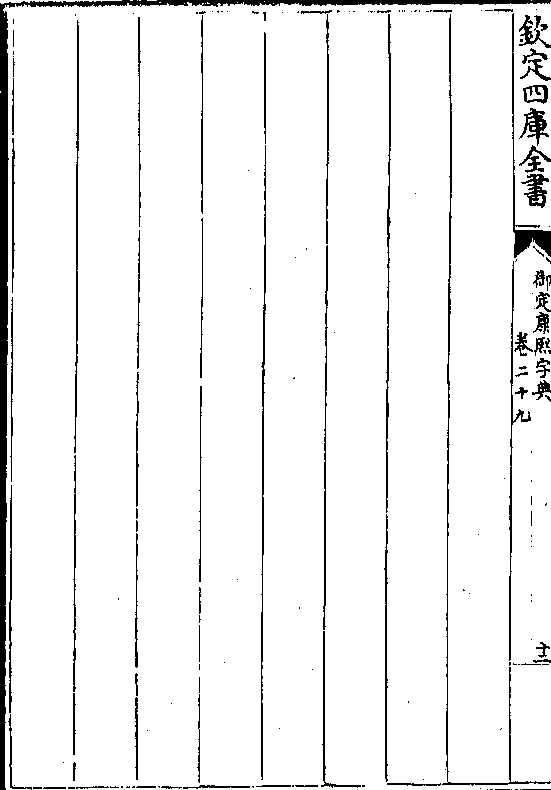 欽定四庫全書
御定康熙字典
卷二十九
十二